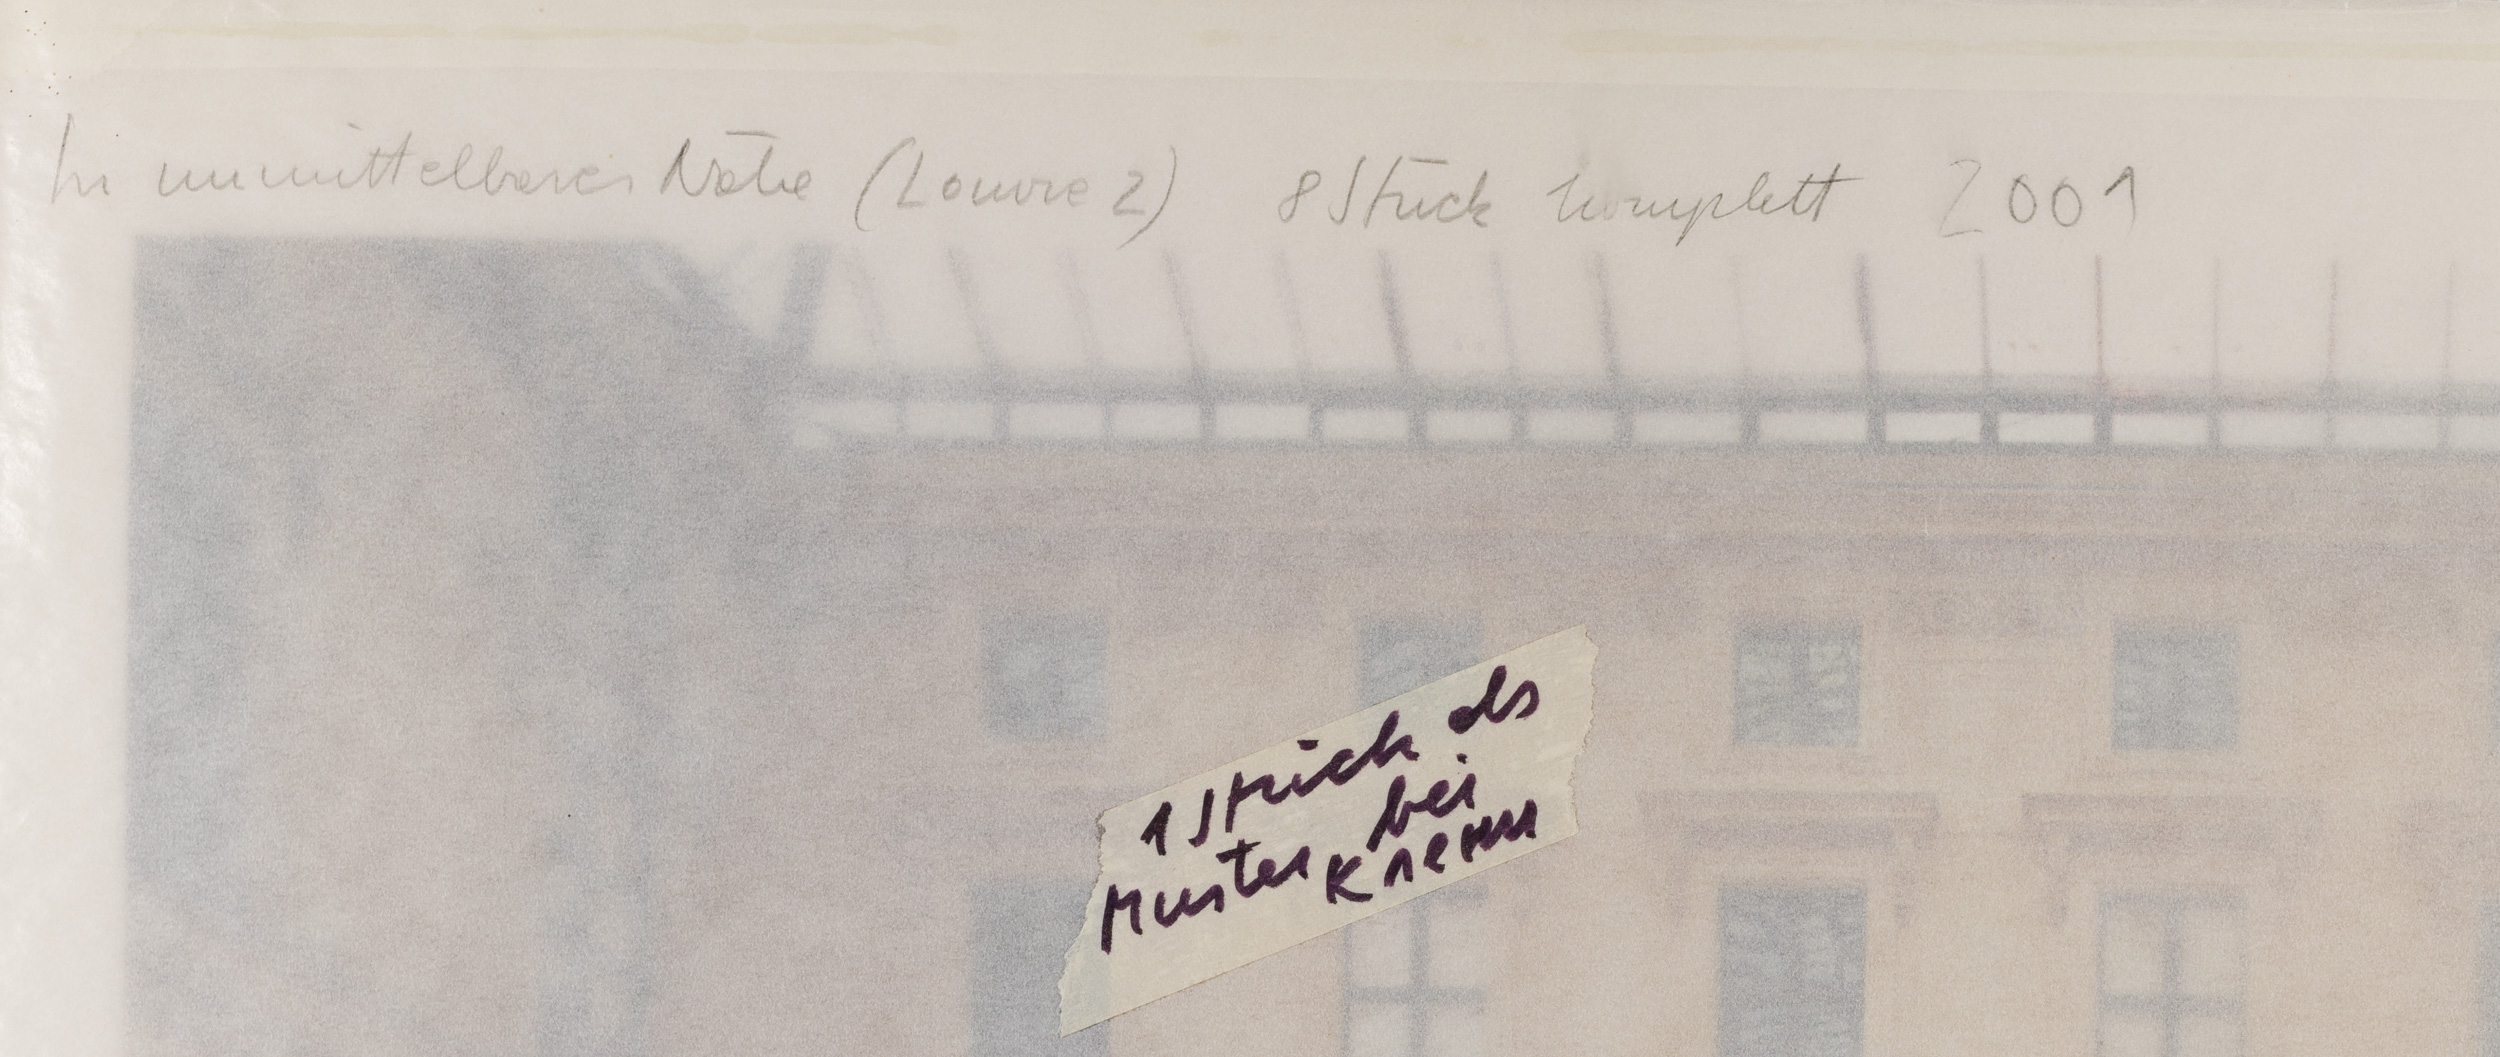 In unmittelbarer Nähe (Louvre 2) 8 Stück komplett 2001
1 Stück als
Muster bei